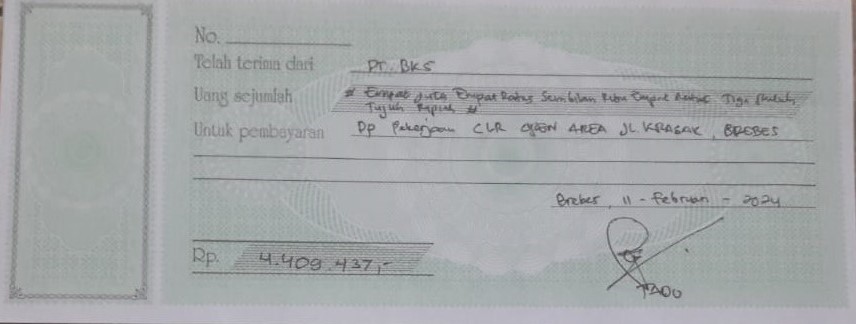 No.
Telah terima dari PT. BKS
Uang sejumlah # Empat juta Empat Ratus Sembilan Ribu Empat Ratus Tiga Puluh
Tujuh Rupiah #
Untuk pembayaran DP Pekerjaan CLR OPEN AREA JL. KRASAK, BREBES
Brebes, 11 - Februari - 2024
Rp. 4.409.437,-